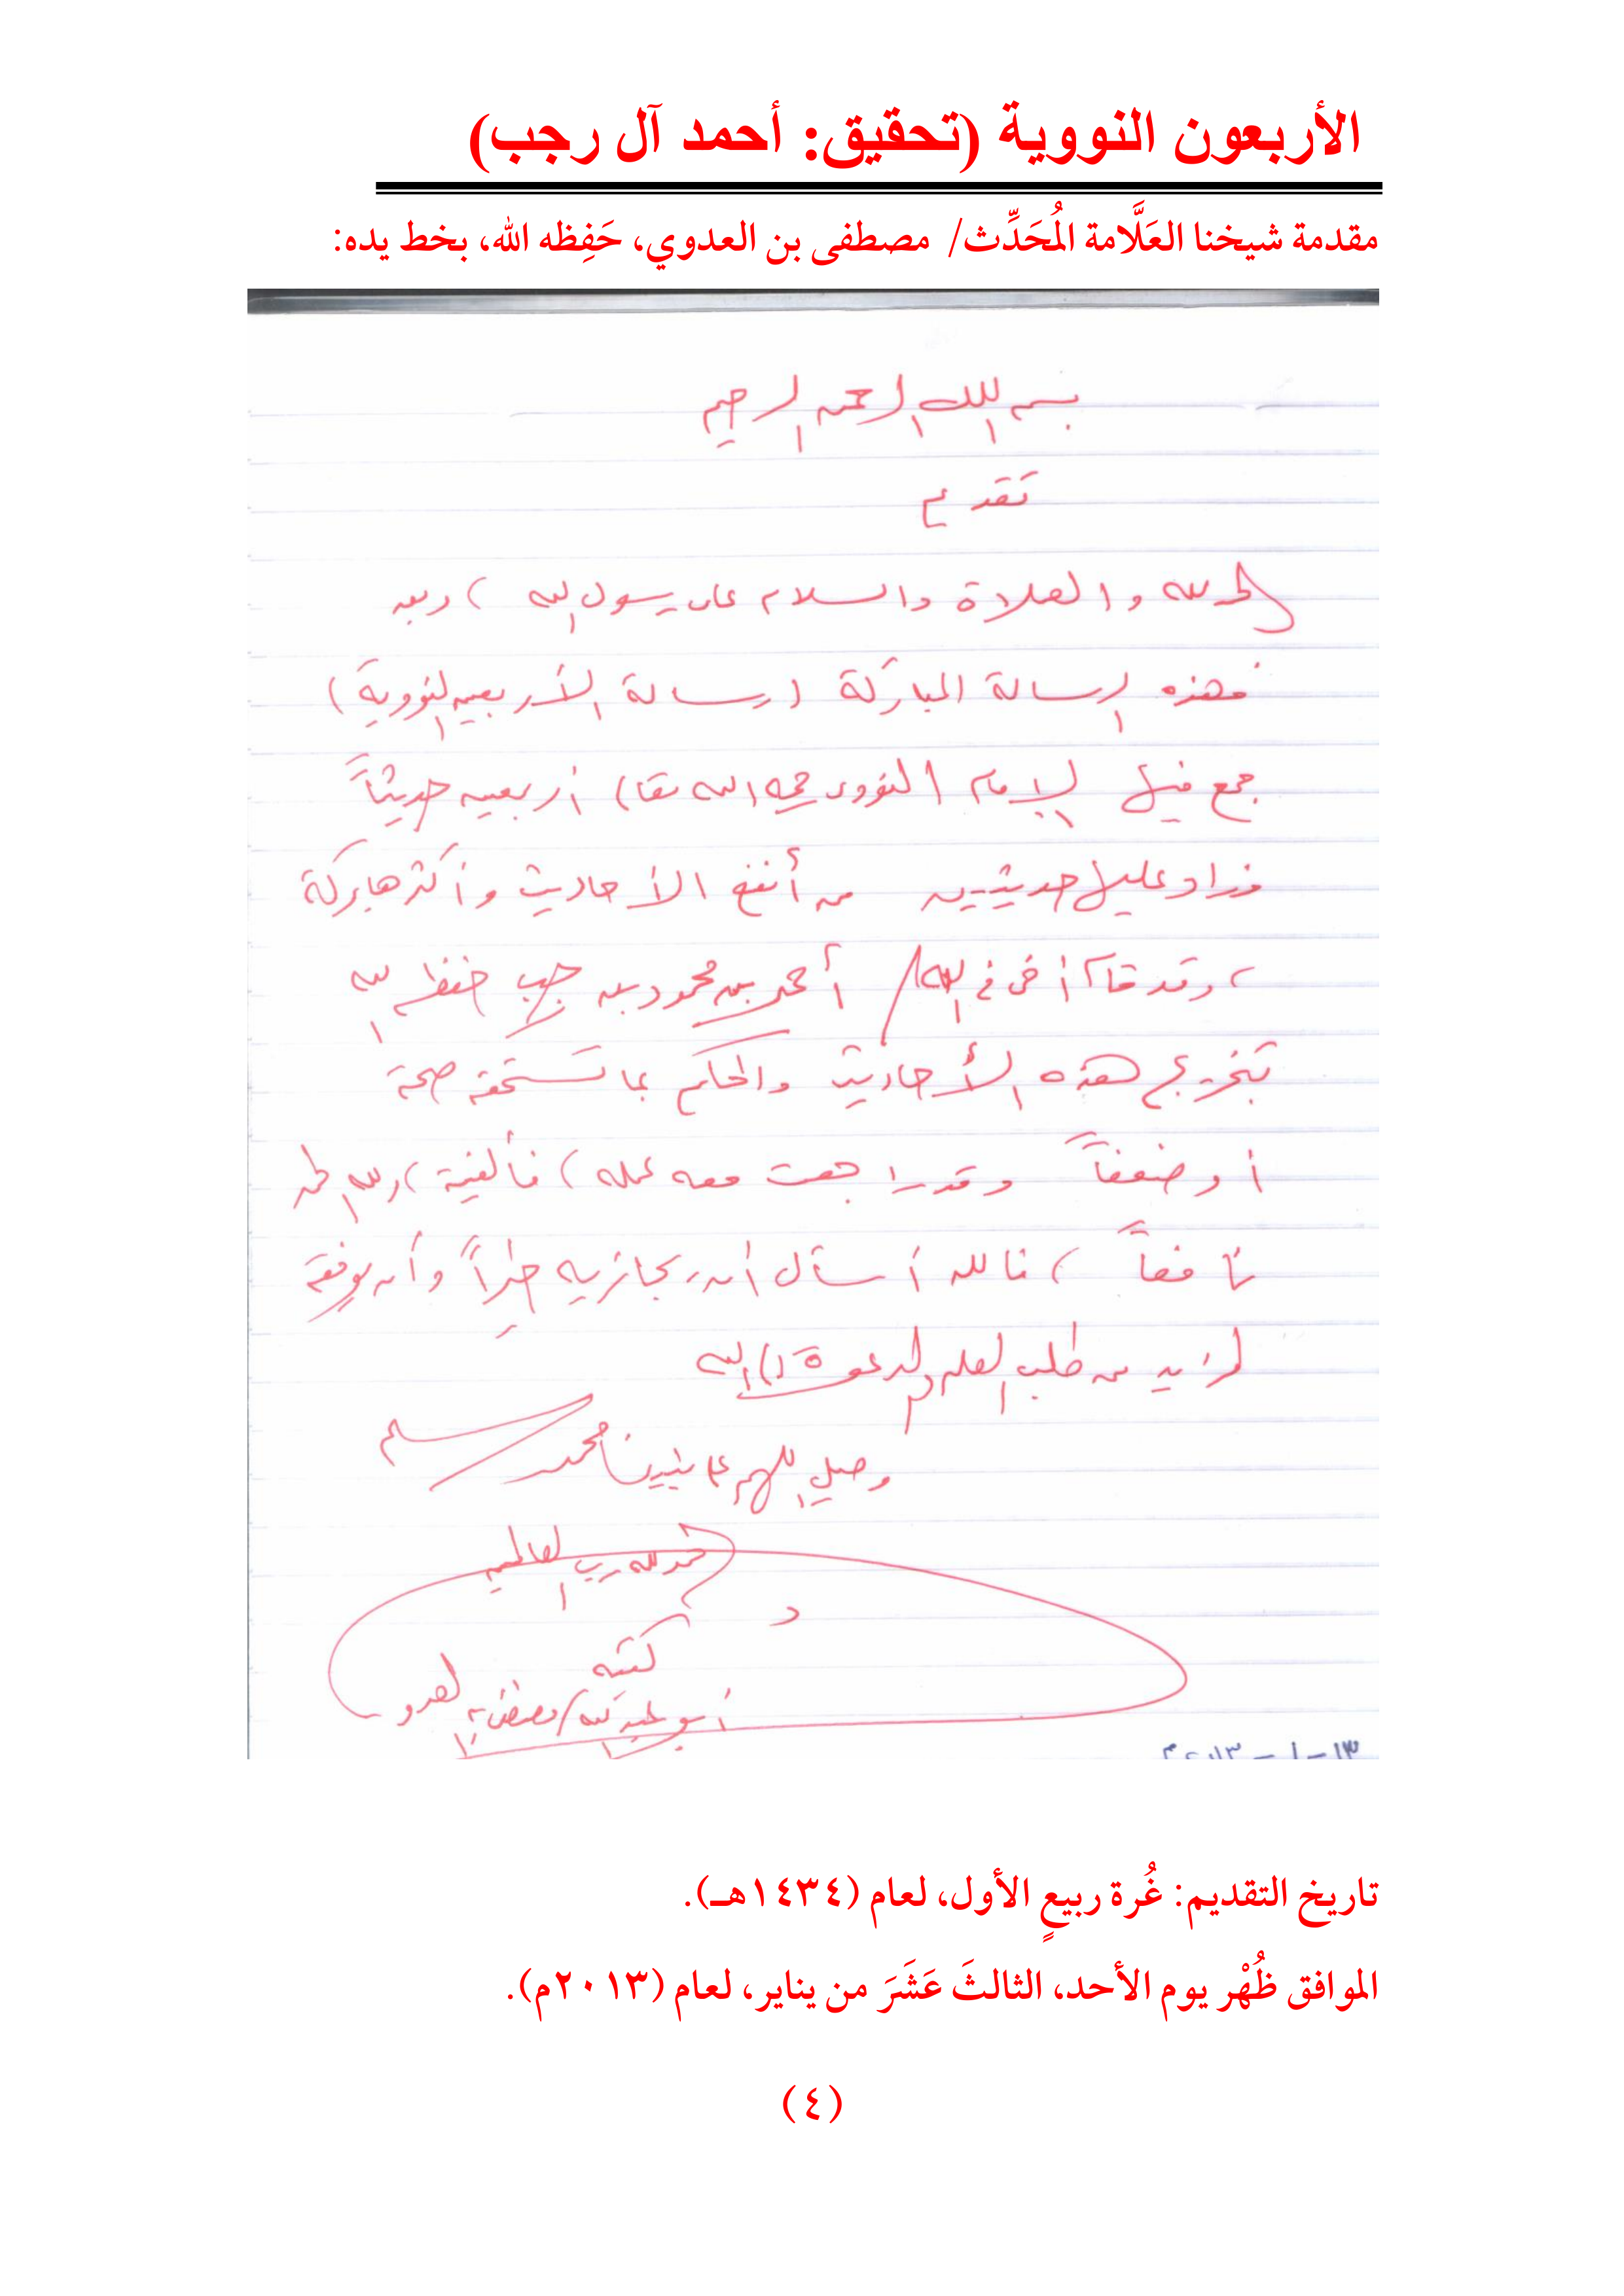 الأربعون النووية (تحقيق: أحمد آل رجب)
مقدمة شيخنا العَلَّامة المُحَدِّث/ مصطفى بن العدوي، حَفِظه الله، بخط يده:
بسم الله الرحمن الرحيم
تقديم
الحمد لله والصلاة والسلام على رسول الله، وبعد
فهذه الرسالة المباركة (رسالة الأربعين النووية)
جمع فيها الإمام النووي رحمه الله تعالى أربعين حديثاً
وزاد عليها حديثين من أنفع الأحاديث وأكثرها بركة
، وقد قام أخي في الله/ أحمد بن محمود بن رجب حفظه الله
بتخريج هذه الأحاديث والحكم بما تستحقه صحة
أو ضعفاً وقد راجعت معه عمله، فألفيته، ولله الحمد
نافعاً، فالله أسأل أن يجازيه خيراً وأن يوفقه
لمزيد من طلب العلم والدعوة إلى الله
وصلى اللهم على نبينا محمد وسلم
والحمد لله رب العالمين
كتبه
أبو عبد الله/ مصطفى بن العدوي
١٣-١-٢٠١٣م
تاريخ التقديم: غُرة ربيعٍ الأول، لعام (١٤٣٤هـ).
الموافق ظُهْر يوم الأحد، الثالثَ عَشَرَ من يناير، لعام (٢٠١٣م).
(٤)